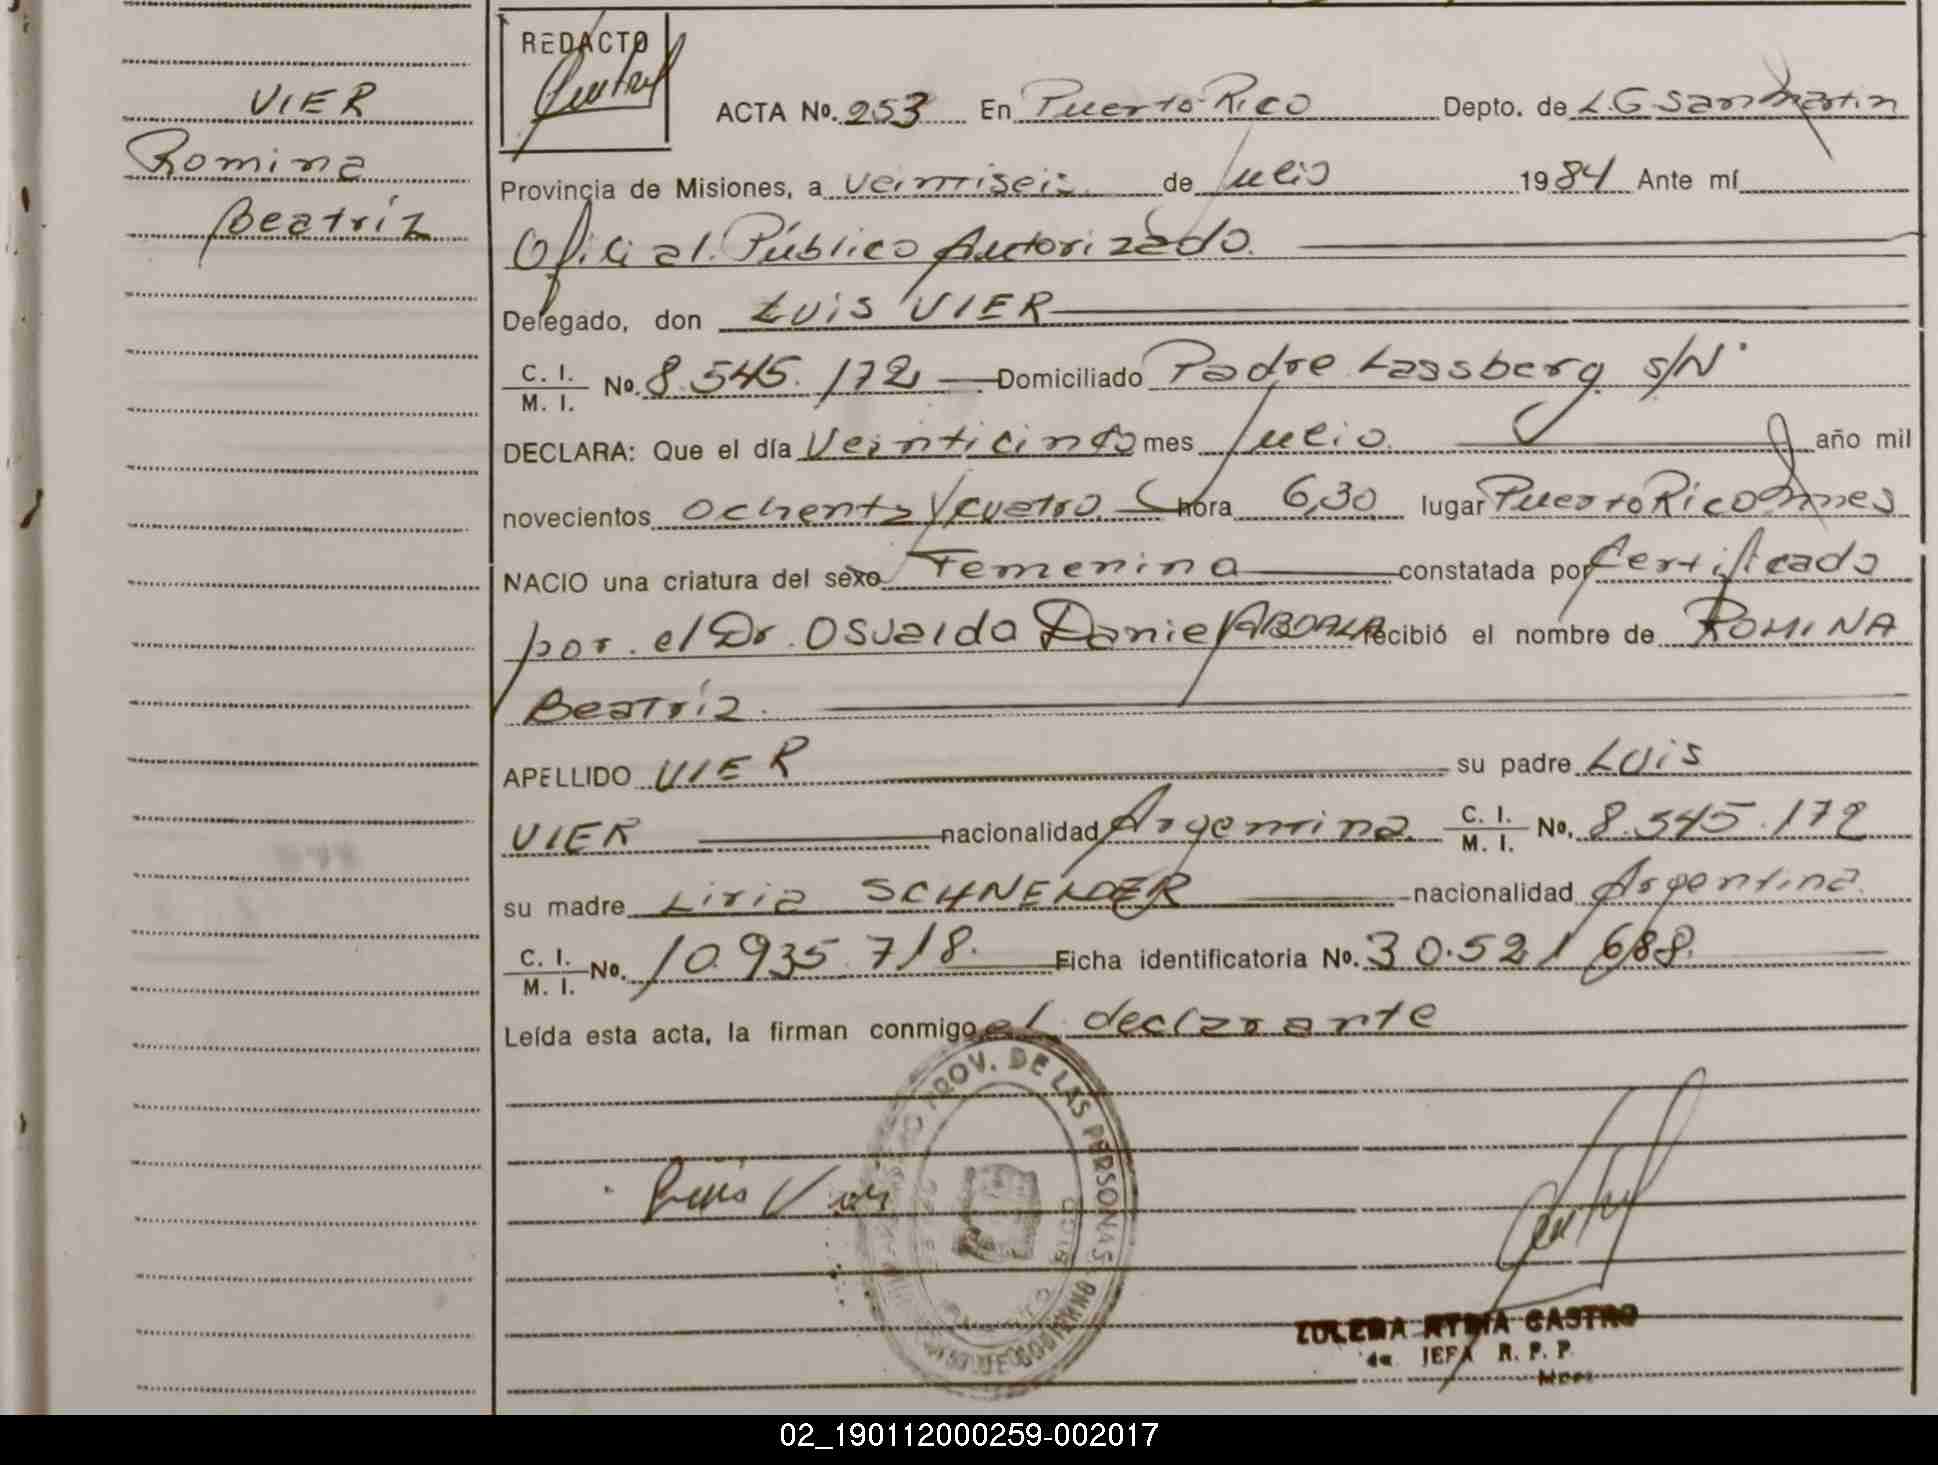 VIER
Romina
Beatríz
REDACTO
ACTA No. 253 En Puerto Rico Depto. de L.G San Martin
Provincia de Misiones, a veintiseis de Julio 1984 Ante mí
Oficial Público Autorizado.
Delegado, don LUIS VIER
C. I.
M. I. No. 8.545.172 Domiciliado Padre Lassberg S/N°
DECLARA: Que el día Veinticinco mes Julio año mil
novecientos ochenta y cuatro hora 6,30 lugar Puerto Rico Mnes
NACIO una criatura del sexo Femenino constatada por Certificado
por el Dr. Osvaldo Daniel ABDALA recibió el nombre de ROMINA
Beatríz.
APELLIDO VIER su padre LUIS
VIER nacionalidad Argentina C. I.
M. I. No. 8.545.172
su madre Liria SCHNEIDER nacionalidad Argentina
C. I.
M. I. No. 10.935.718. Ficha identificatoria No. 30.521.688.
Leída esta acta, la firman conmigo el declarante
PROV. DE LAS PERSONAS
Luis Vier
ZULEMA CASTRO
JEFA R. P. P.
02_190112000259-002017